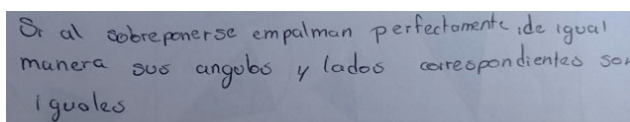 Si al sobreponerse empalman perfectamente, de igual
manera sus angulos y lados correspondientes son
iguales